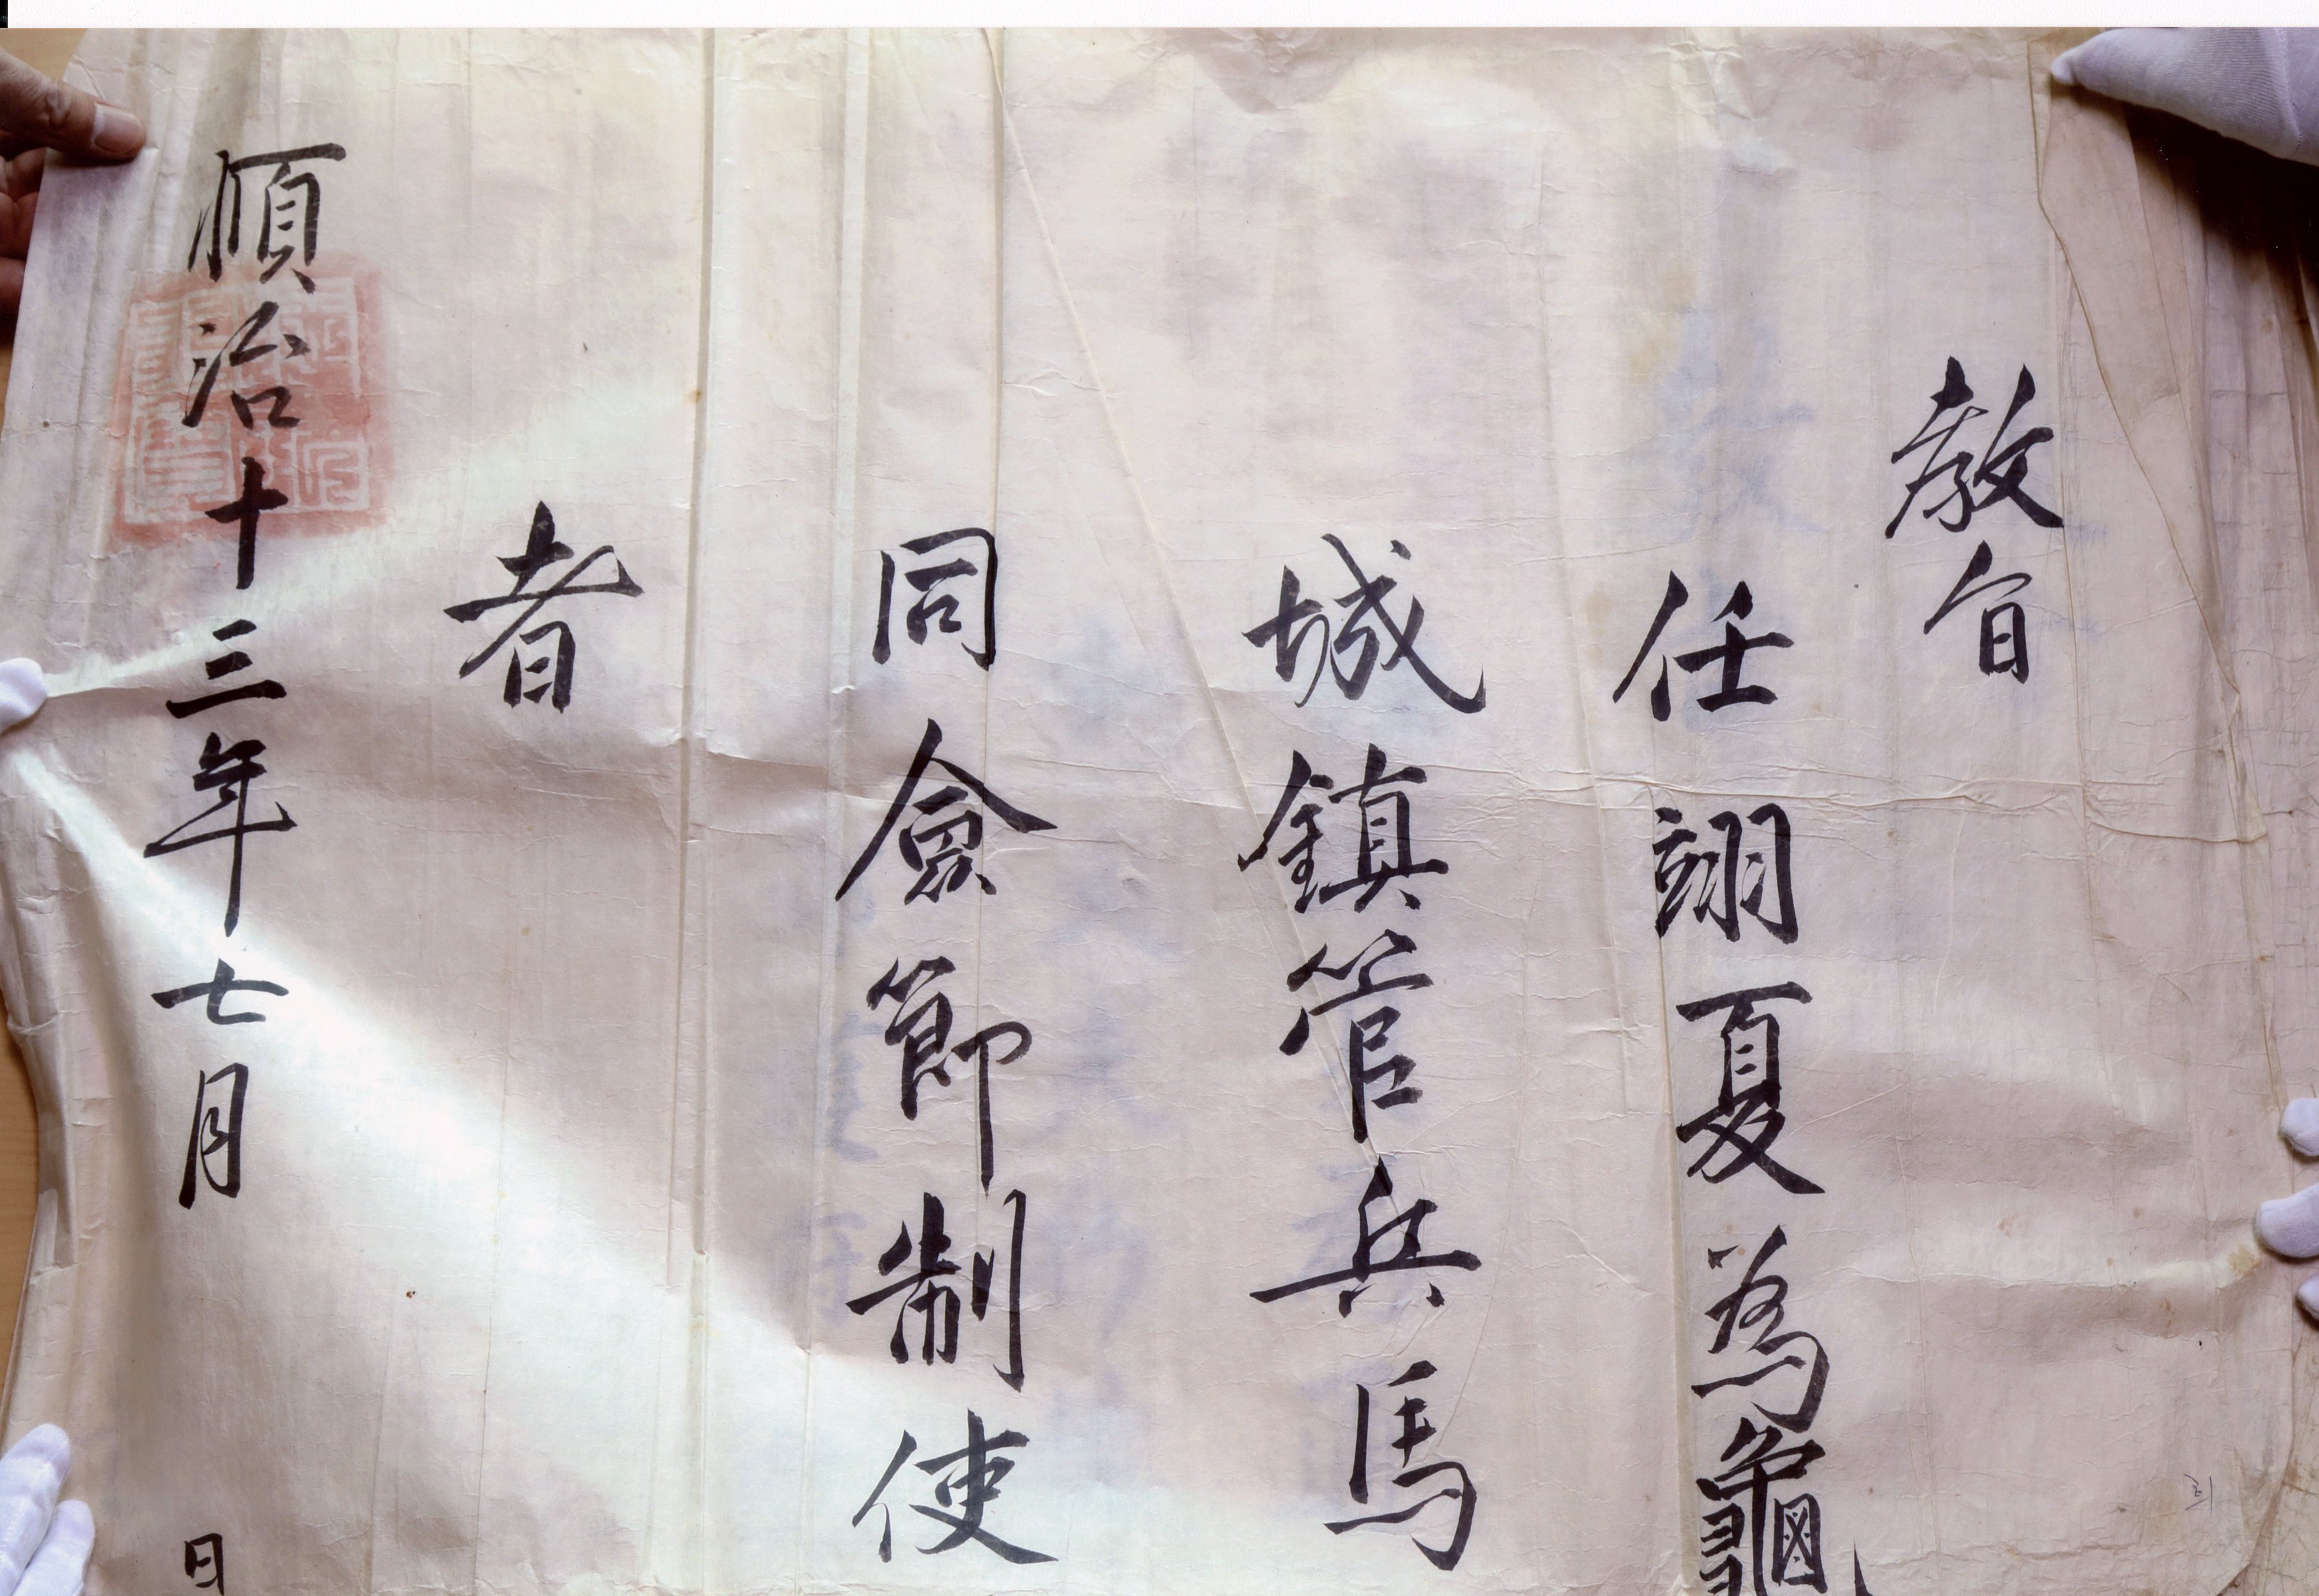 教旨
任翊夏為龜
城鎮管兵馬
同僉節制使
者
順治十三年七月 日